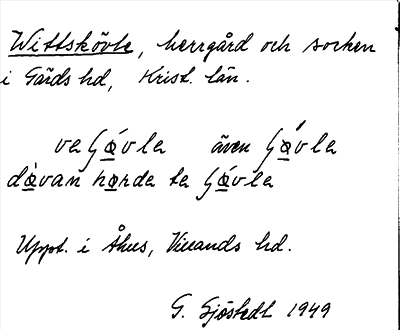 Wittskövle, herrgård och socken
i Gärds hd, Krist. län.
veʃø̀vle även ʃǿvle
døvan hørde te ʃǿvle
Uppt. i Åhus, Villands hd.
G. Sjöstedt 1949